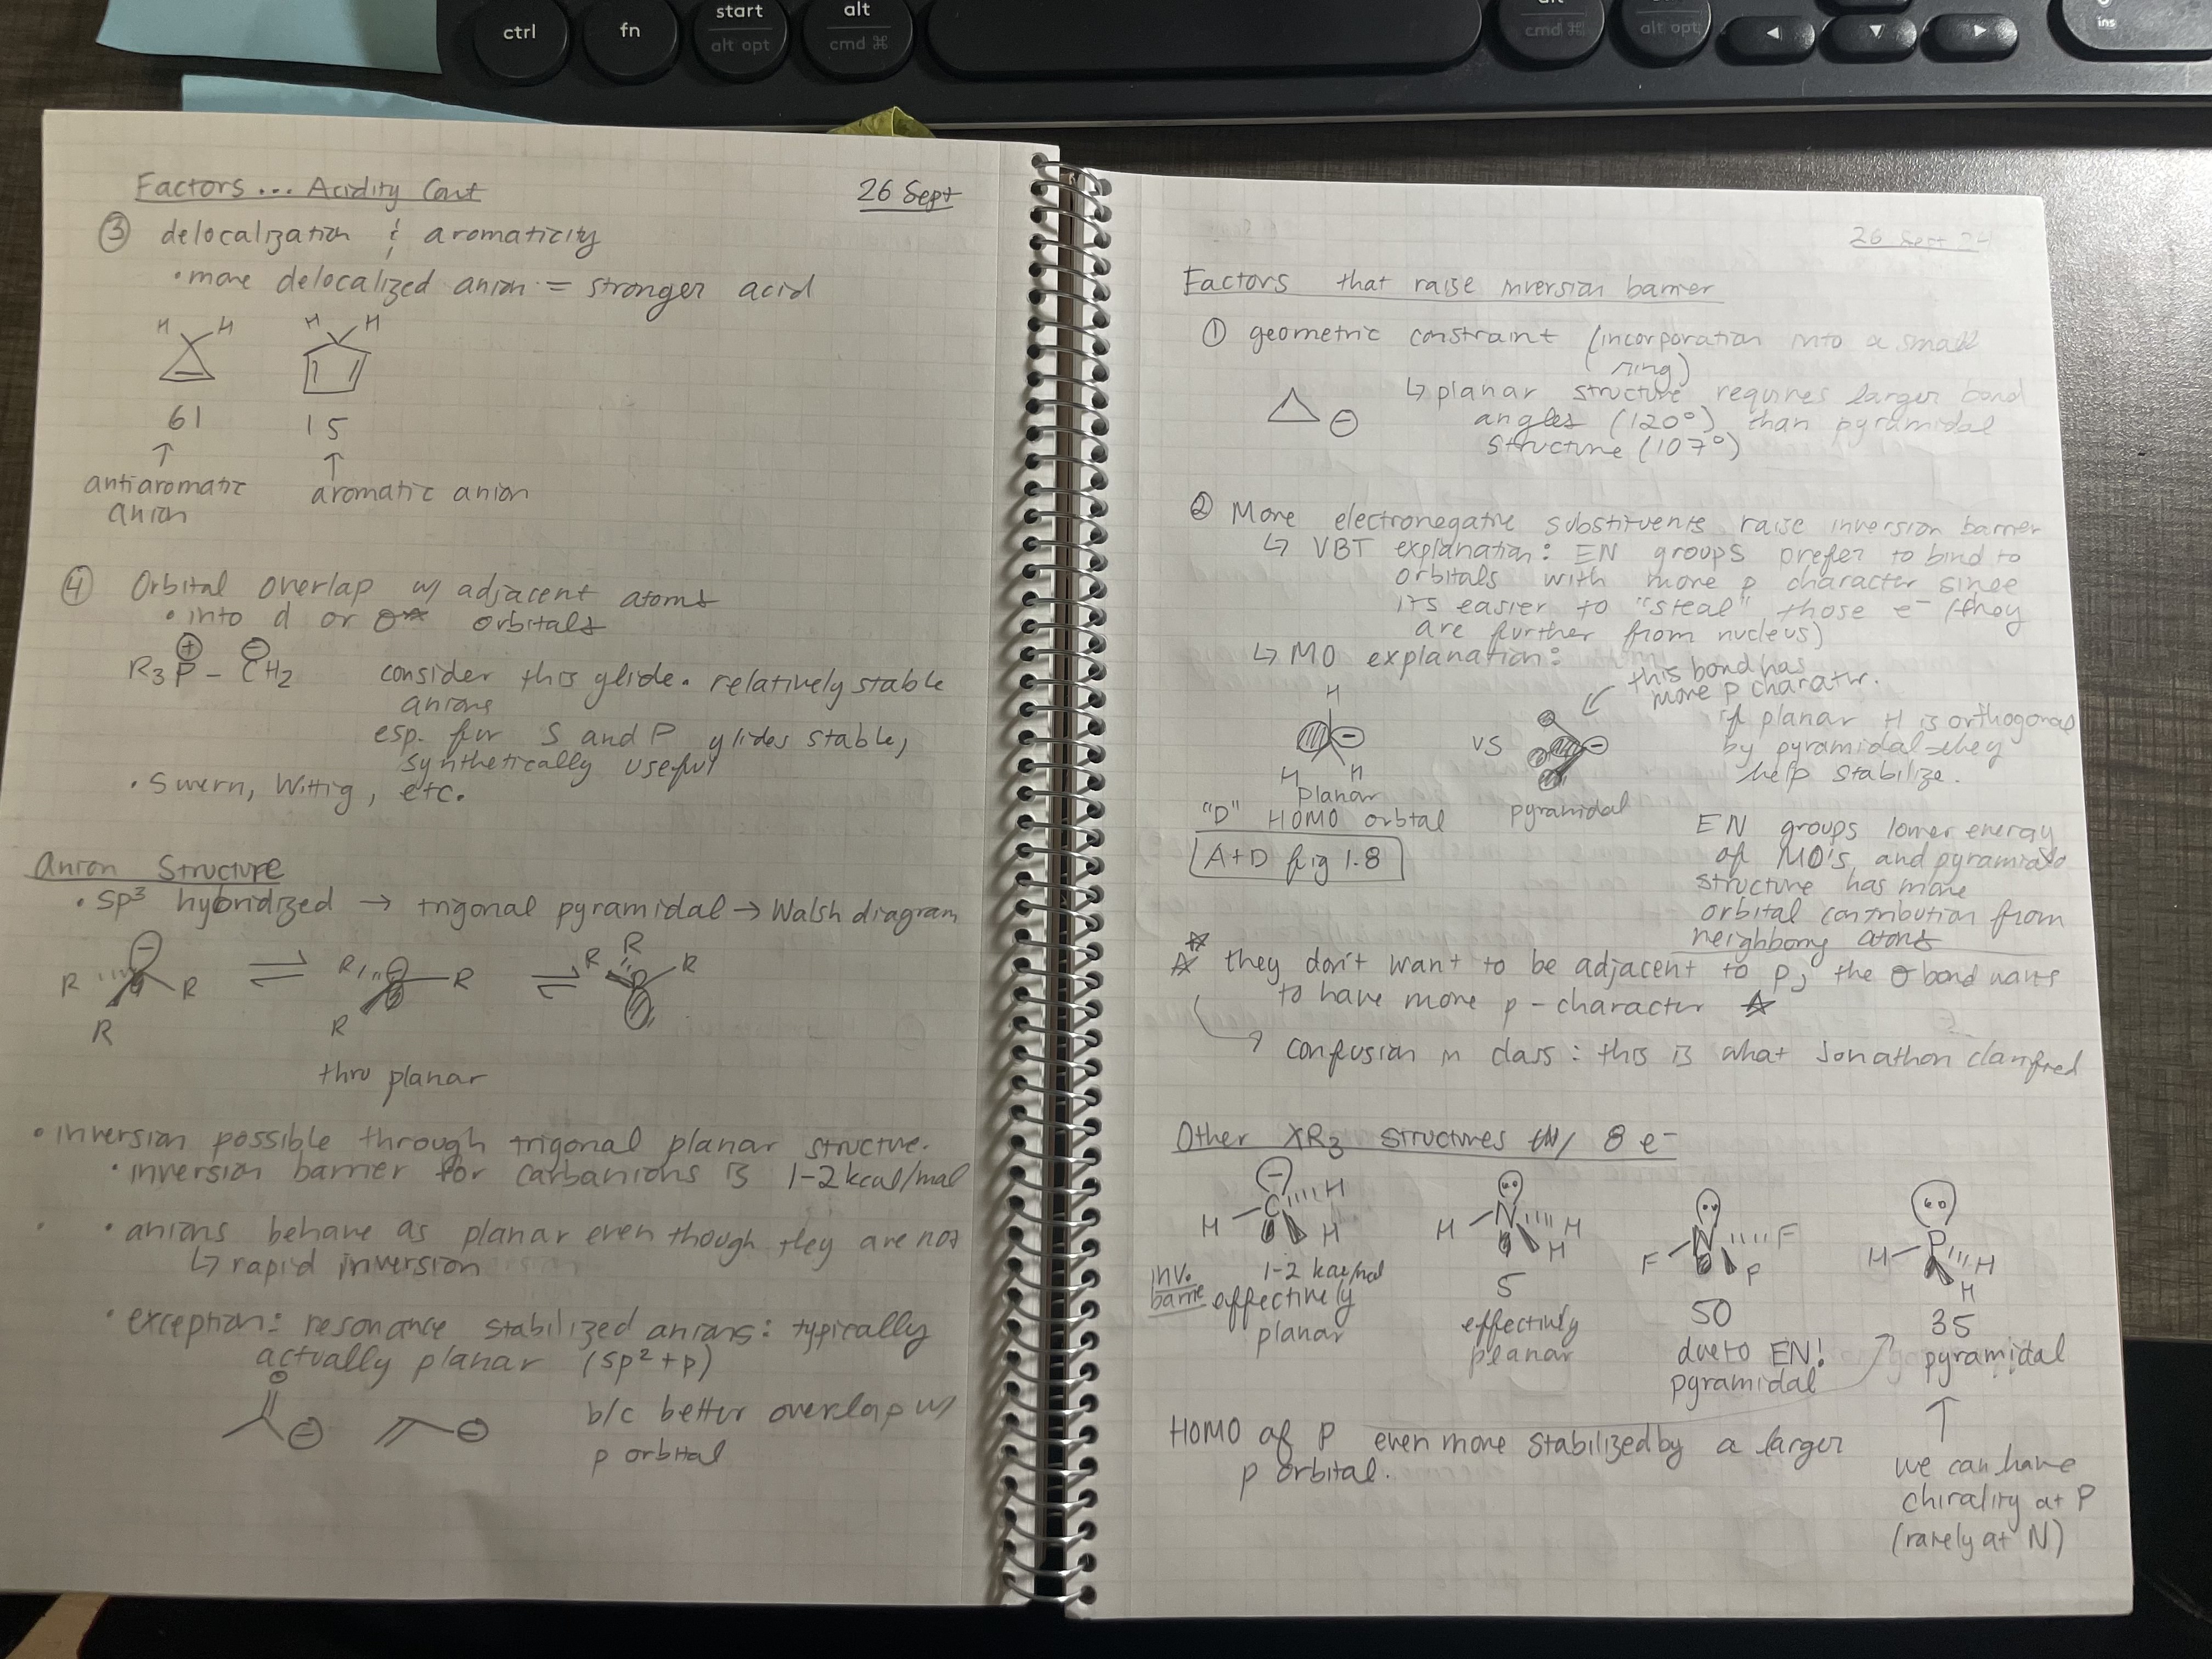 ctrl
fn
start
alt opt
alt
cmd ⌘
alt
cmd ⌘
ctrl
alt opt
◄
▼
►
ins
Factors... Acidity Cont
26 Sept
③ delocalization & aromaticity
• more delocalized anion = stronger acid
H H
H H
61
15
↑
↑
antiaromatic
anion
aromatic anion
④ Orbital overlap w/ adjacent atoms
• into d or σ* orbitals
⊕ ⊖
R3P – CH2
consider this ylide. relatively stable
anions
esp. for S and P ylides stable,
synthetically useful
• Swern, Wittig, etc.
Anion Structure
• sp³ hybridized → trigonal pyramidal → Walsh diagram
R R R ⇌ R R R ⇌ R R R
thru planar
• inversion possible through trigonal planar structure.
• inversion barrier for carbanions is 1-2 kcal/mol
• anions behave as planar even though they are not
↳ rapid inversion
• exception: resonance stabilized anions: typically
actually planar (sp²+p)
O
⊖
⊖
b/c better overlap w/
p orbital
26 Sept 24
Factors that raise inversion barrier
① geometric constraint (incorporation into a small
ring)
↳ planar structure requires larger bond
angles (120°) than pyramidal
structure (107°)
⊖
② More electronegative substituents raise inversion barrier
↳ VBT explanation: EN groups prefer to bind to
orbitals with more p character since
it's easier to "steal" those e⁻ (they
are further from nucleus)
↳ MO explanation:
this bond has
more p charatr.
H
H H
planar
vs
pyramidal
if planar H is orthogonal
by pyramidal they
help stabilize.
"D" HOMO orbtal
A+D fig 1.8
EN groups lower energy
of MO's, and pyramidal
structure has more
orbital contribution from
neighborng atoms
☆ they don't want to be adjacent to p, the σ bond wants
to have more p-character ☆
→ confusion in class: this is what Jonathon clarified
Other XR3 structures w/ 8 e⁻
⊖
H C H H
H N H H
F N F F
H P H H
inv.
barrie
1-2 kcal/mol
effectively
planar
5
effectively
planar
50
due to EN!
pyramidal
35
pyramidal
↑
we can have
chirality at P
(rarely at N)
HOMO of P even more stabilized by a larger
p orbital.